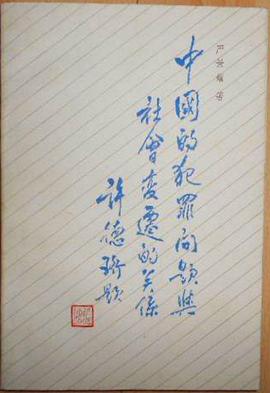 严景耀著
中國的犯罪问題與
社會变遷的关係
許德珩題